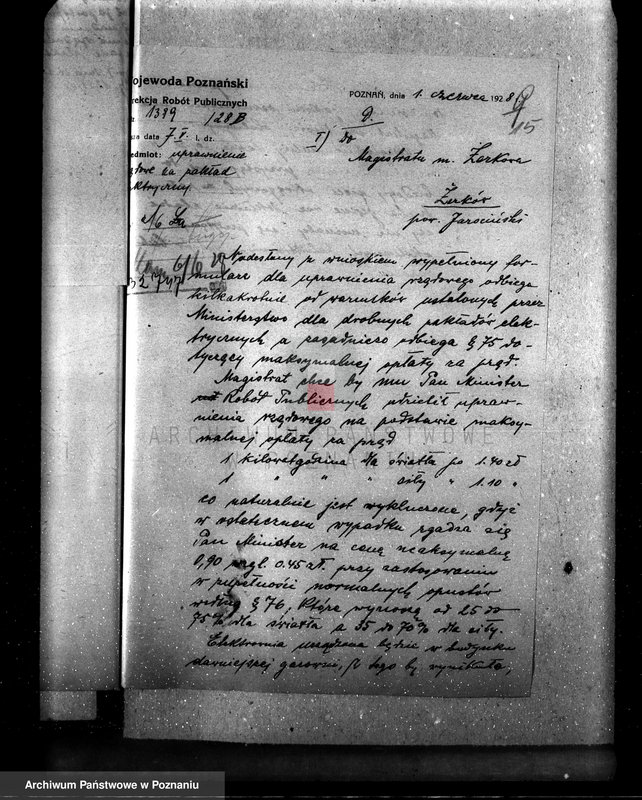 ojewoda Poznański
rekcja Robót Publicznych
1389 /28 B
data 7.V. l. dz.
edmiot: uprawnienie
zakład
ktryczny
POZNAŃ, dnia 1. czerwca 1928.
15
I) do
Magistratu m. Żerkowa
Żerków
pow. Jarociński
Nadesłany z wnioskiem wypełniony for-
mularz dla uprawnienia rządowego odbiega
kilkakrotnie od warunków ustalonych przez
Ministerstwo dla drobnych zakładów elek-
trycznych a zasadniczo odbiega § 75 do-
tyczący maksymalnej opłaty za prąd.
Magistrat chce by mu Pan Minister
Robót Publicznych udzielił upraw-
nienia rządowego na podstawie maksy-
malnej opłaty za prąd
1 kilowatgodzina dla światła po 1.40 zł
1 " " " siły " 1.10 "
co naturalnie jest wykluczone, gdyż
w ostatecznem wypadku zgadza się
Pan Minister na cenę maksymalną
0,90 wzgl. 0.45 zł. przy zastosowaniu
w zupełności normalnych opustów
według § 76, które wynoszą od 25 do
75% dla światła a 35 do 70% dla siły.
Elektrownia urządzona będzie w budynku
dawniejszej gazowni, z tego by wynikało,
ARCHIWUM PAŃSTWOWE
W POZNANIU
Archiwum Państwowe w Poznaniu